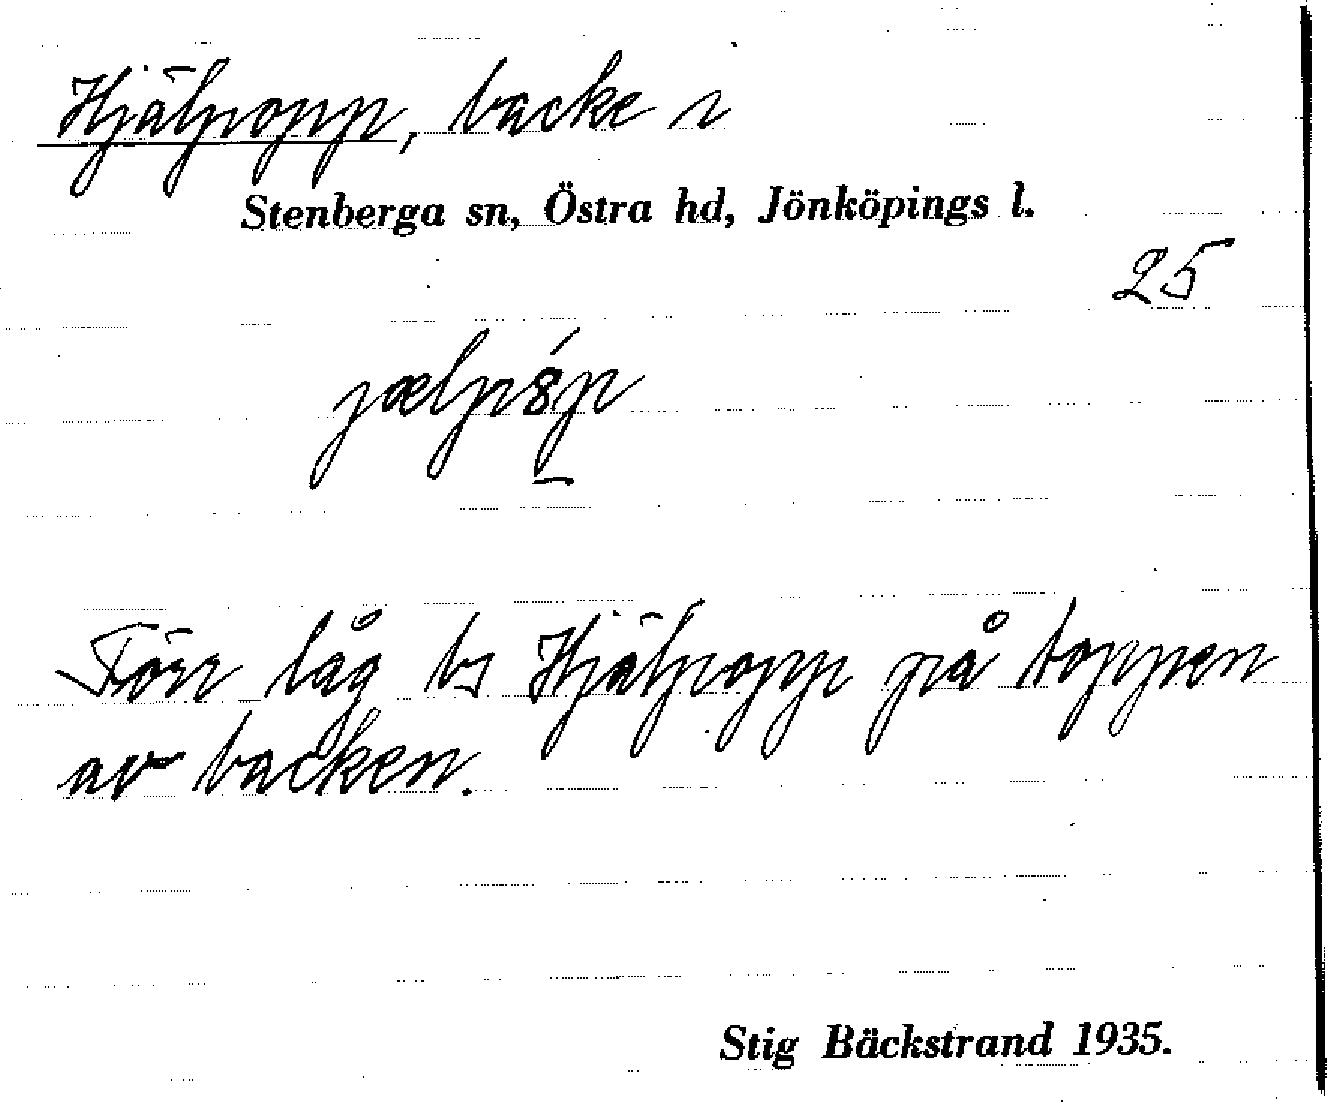 Hjälpopp, backe i
Stenberga sn, Östra hd, Jönköpings l.
25
jælpȣ́p
Förr låg bs Hjälpopp på toppen
av backen.
Stig Bäckstrand 1935.